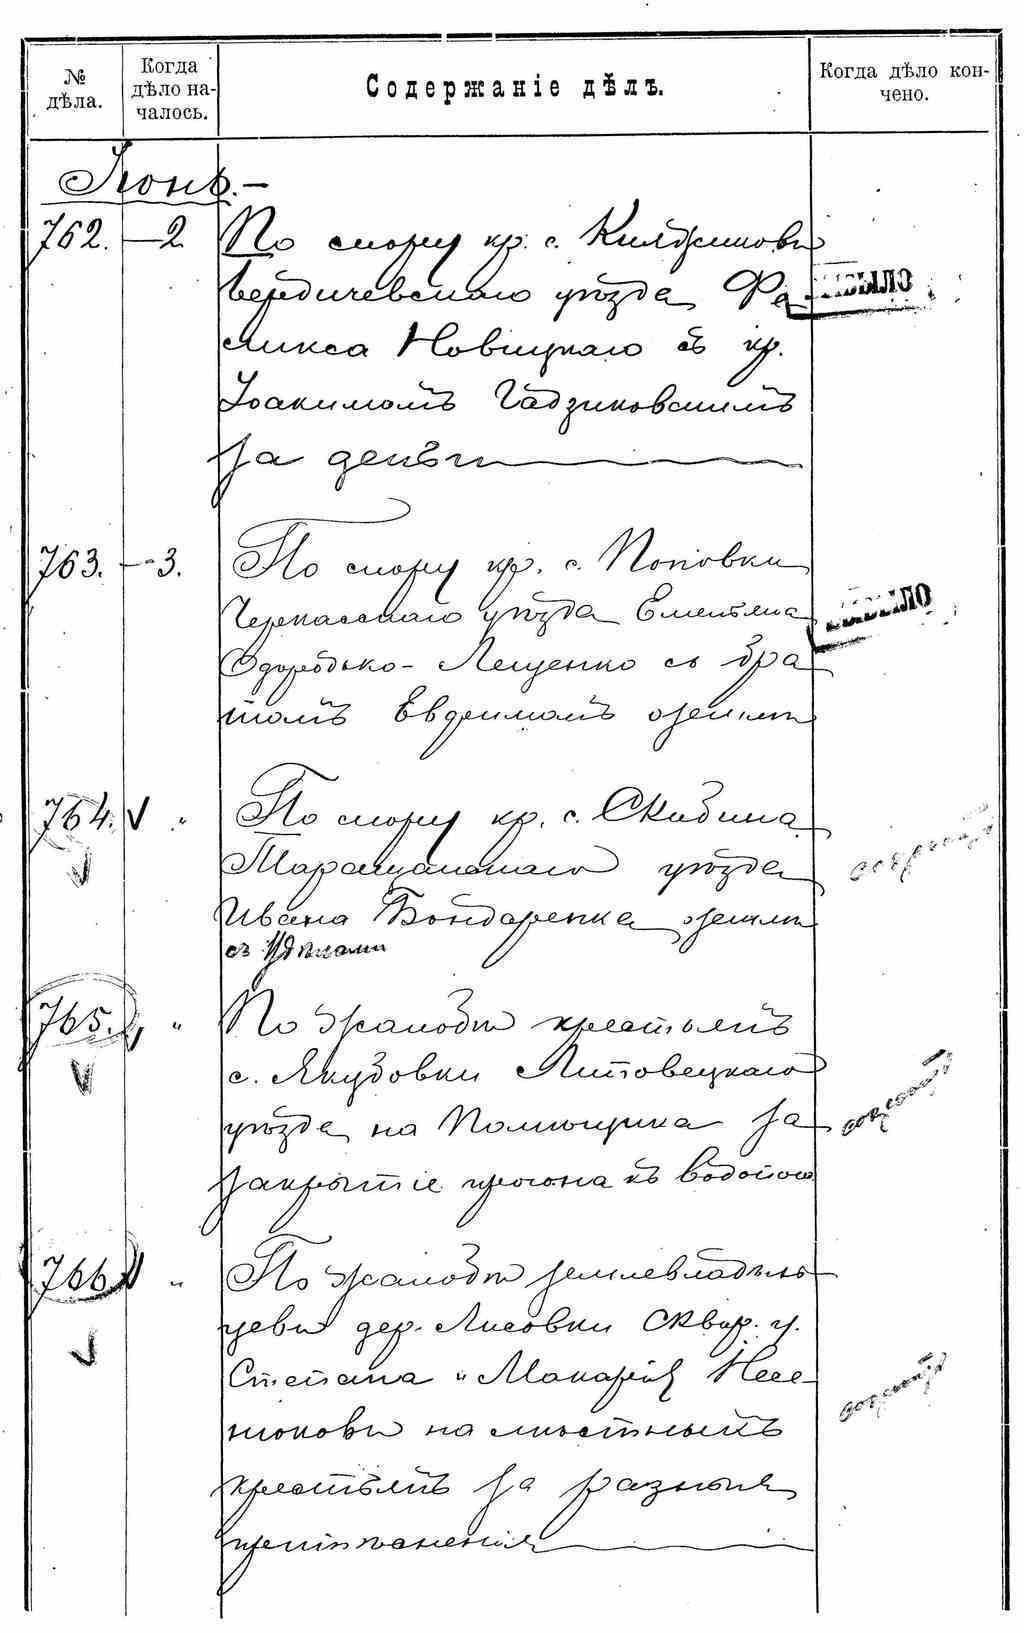 № дѣла.
Когда дѣло началось.
Содержаніе дѣлъ.
Когда дѣло кончено.
Іюнь.—
762. — 2
По спору кр. с.
Бердичевскаго уѣзда Фе
ликса Новицкаго съ кр.
Іоакимомъ Гадзиковскимъ
за деньги
763. — 3.
По спору кр. с. Поповки
Черкасскаго уѣзда Емельяна
Лещенко съ бра
томъ Евдокимомъ о земли
764. "
По спору кр. с. Скибина
Таращанскаго уѣзда
Ивана Бондаренка о земли
съ
765. "
По жалобѣ крестьянъ
с. Якубовки Липовецкаго
уѣзда на Помѣщика за
закрытіе прогона къ водопою
766. "
По жалобѣ землевладѣль
цевъ дер. Лисовки Сквир. у.
Степана и Макарія
на мѣстныхъ
крестьянъ за разныя
притѣсненія